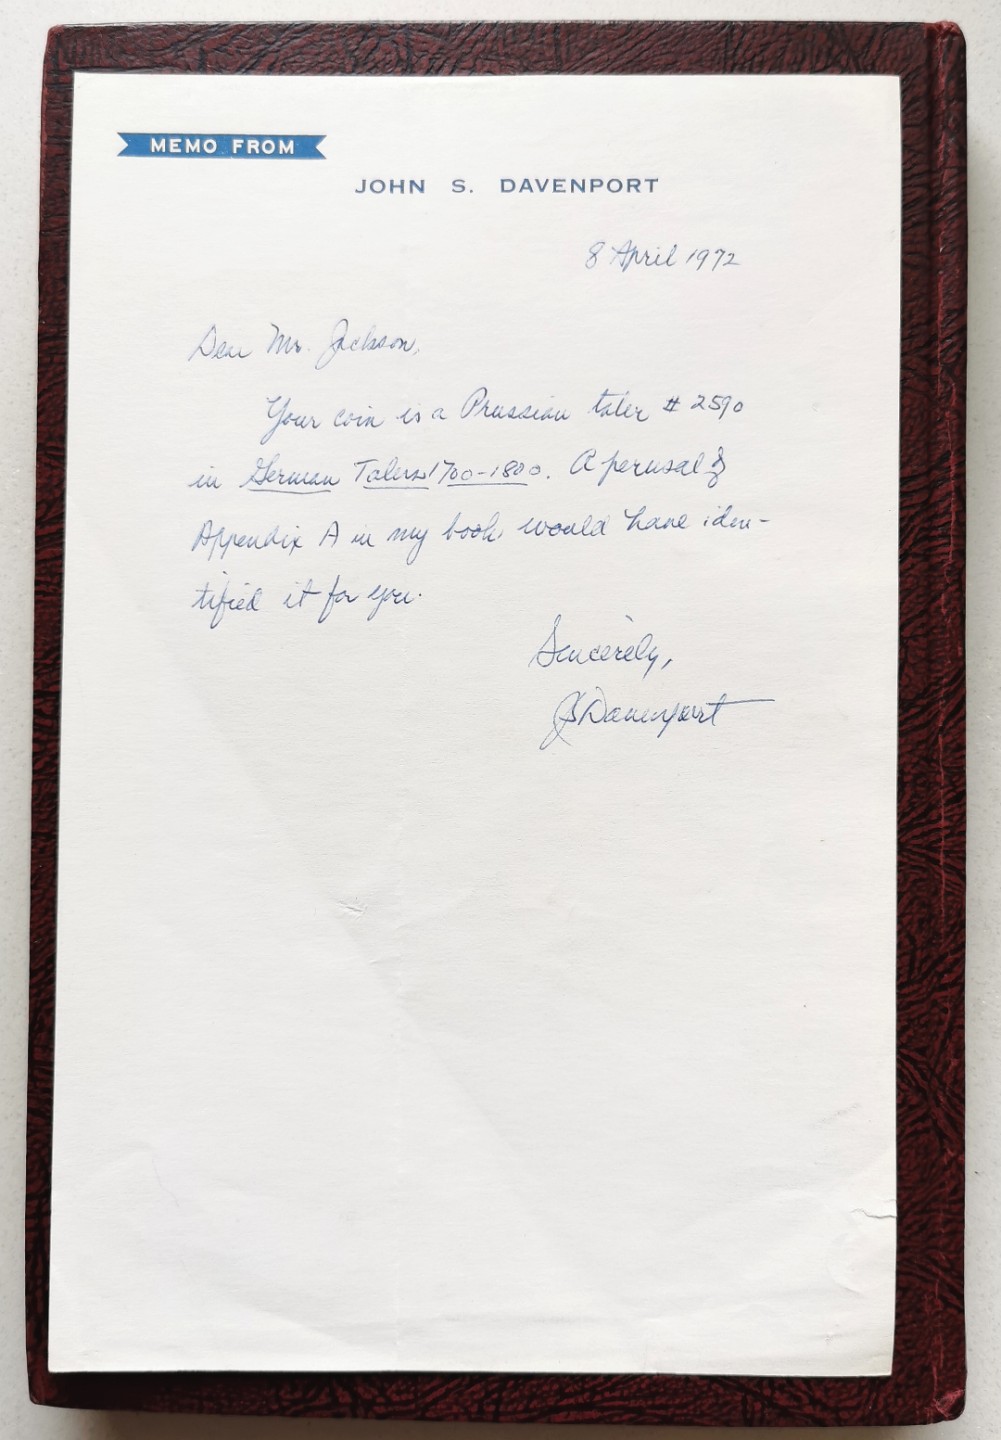 MEMO FROM
JOHN S. DAVENPORT
8 April 1972
Dear Mr. Jackson,
Your coin is a Prussian taler # 2590
in German Talers 1700-1800. A perusal of
Appendix A in my book would have iden-
tified it for you.
Sincerely,
JSDavenport